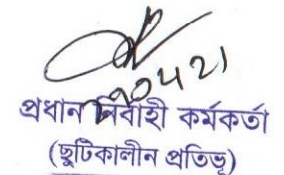 প্রধান নির্বাহী কর্মকর্তা
(ছুটিকালীন প্রতিভূ)